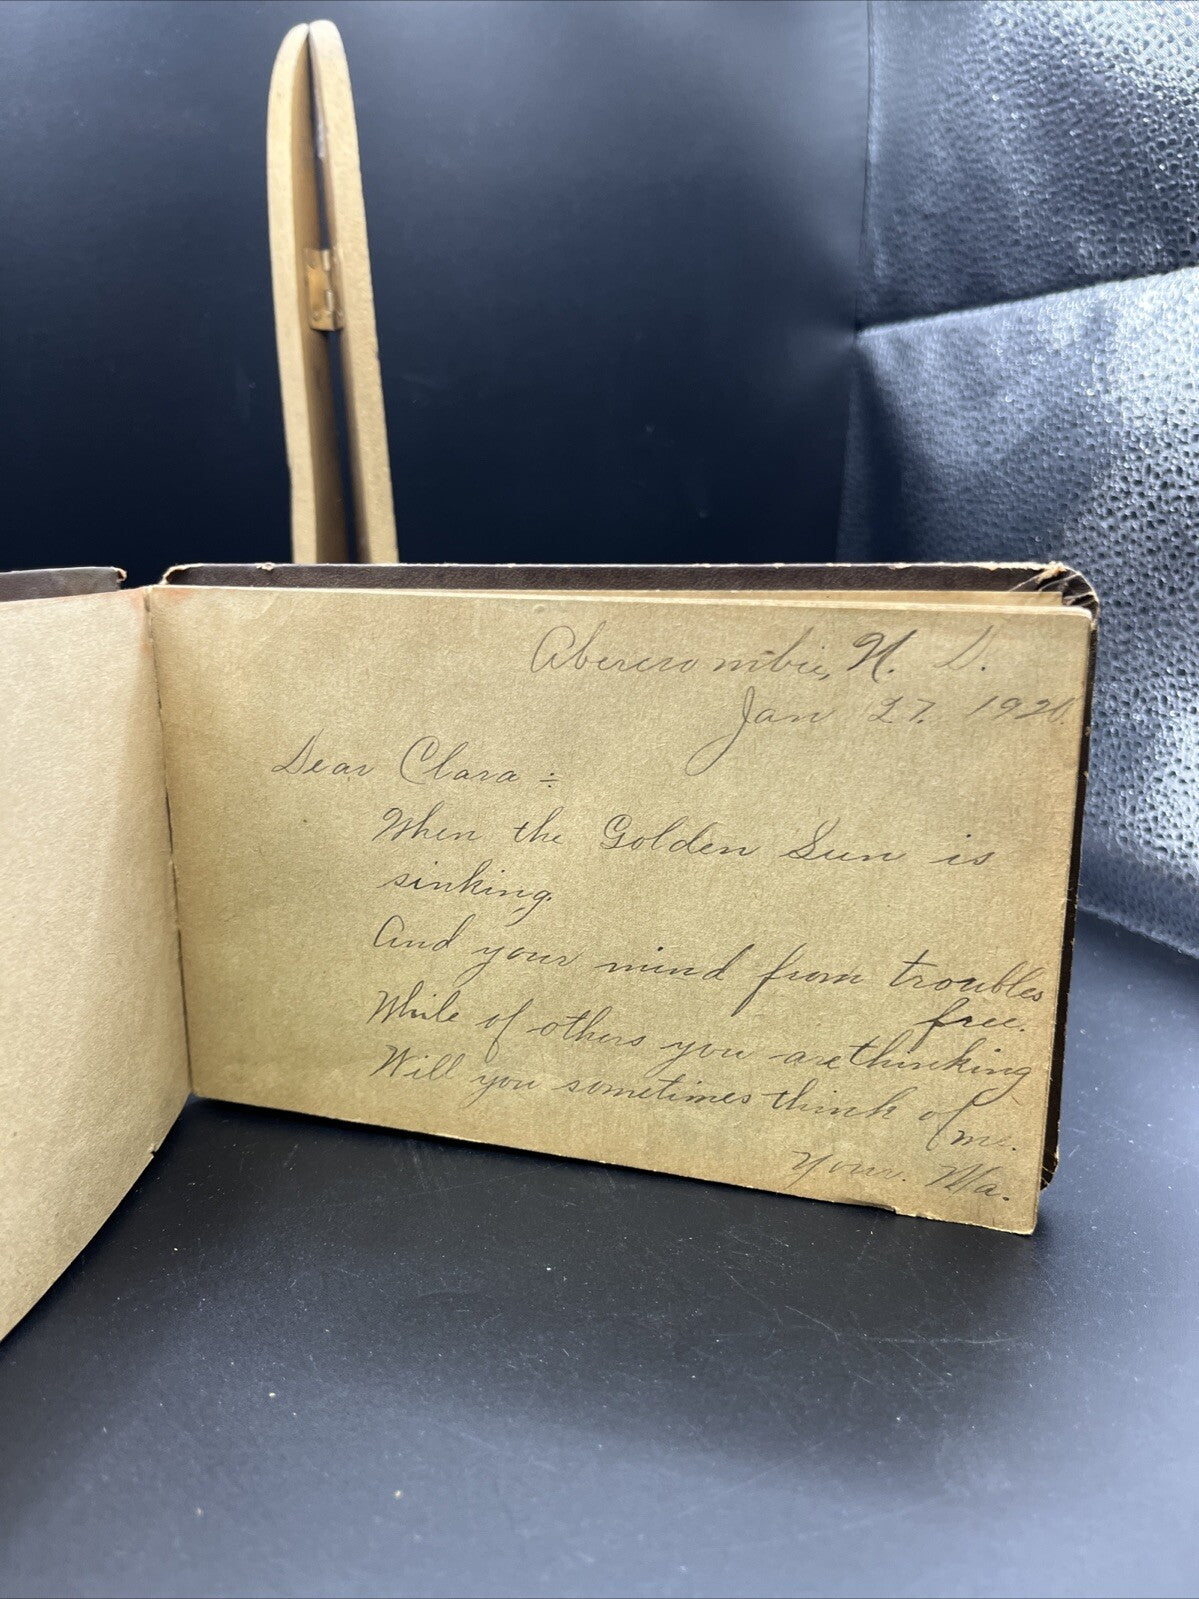 Abercrombie, N. D.
Jan 27. 1920.
Dear Clara :
When the Golden Sun is
sinking.
And your mind from troubles
free.
While of others you are thinking
Will you sometimes think of
me.
Your. Ma.